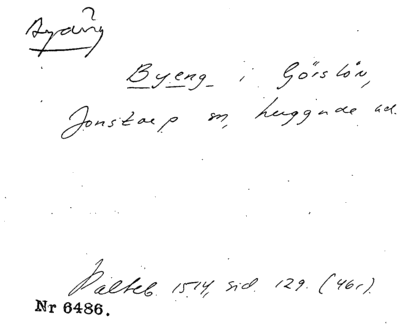 Byeng i Görslöv,
Jonstorp sn, Luggude hd.
Palteb. 1514, sid. 129. (46r)
Nr 6486.